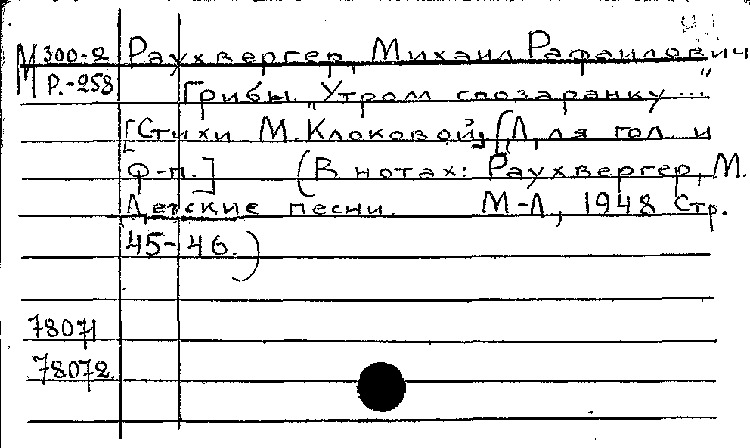 М 300-2 Раухвергер, Михаил Рафаилович
Р.-258 Грибы „Утром спозаранку..."
[Стихи М. Клоковой] [Для гол. и
ф-п.] (В нотах: Раухвергер, М.
Детские песни. М-Л, 1948 Стр.
45-46.)
78071
78072